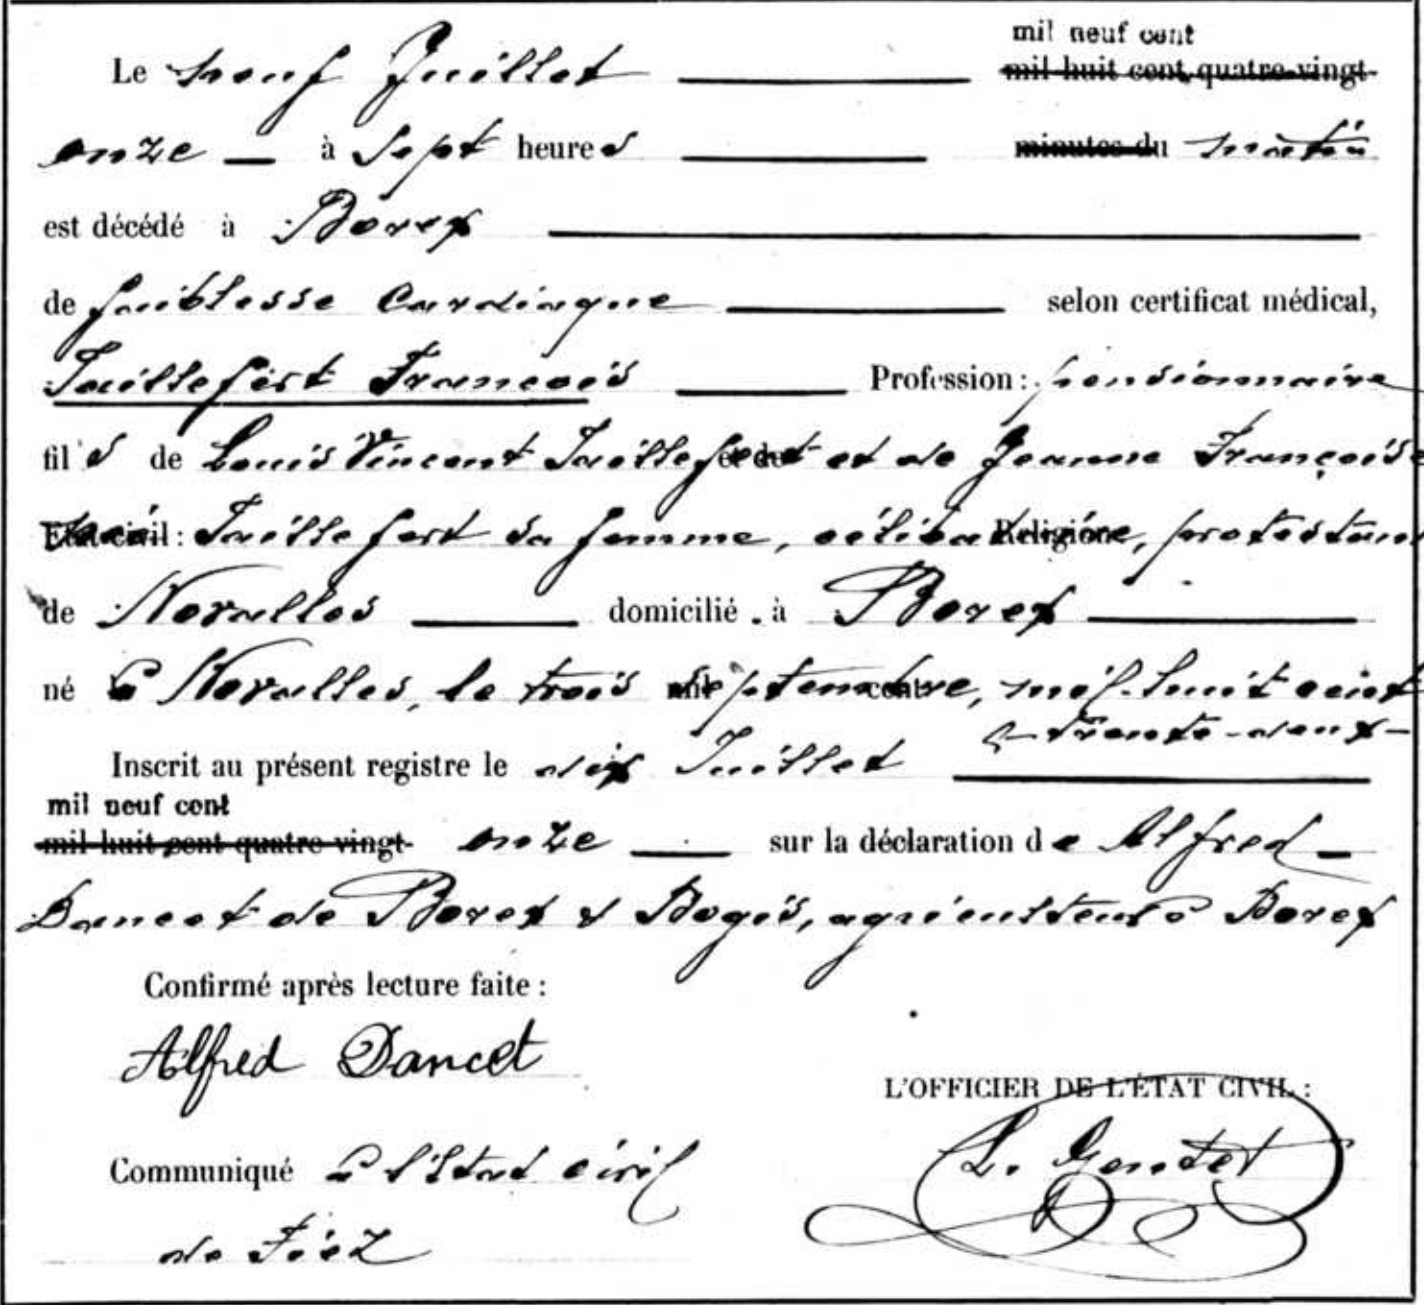 mil neuf cent
Le neuf Juillet mil huit cent quatre-vingt-
onze à Sept heures minutes du matin
est décédé à Borex
de faiblesse Cardiaque selon certificat médical,
Taillefert François Profession: pensionnaire
fils de Louis Vincent Taillefert et de Jeanne Françoise
Etat civil: Taillefert sa femme, célibataire, Religion protestant
de Novalles domicilié à Borex
né à Novalles, le trois septembre, mil-huit cent
trente-deux-
Inscrit au présent registre le dix Juillet
mil neuf cent
mil huit cent quatre vingt- onze sur la déclaration de Alfred
Dancet de Borex & Bogis, agriculteur à Borex
Confirmé après lecture faite :
Alfred Dancet
L'OFFICIER DE L'ÉTAT CIVIL :
L. Gendet
Communiqué à l'Etat civil
de Fiez